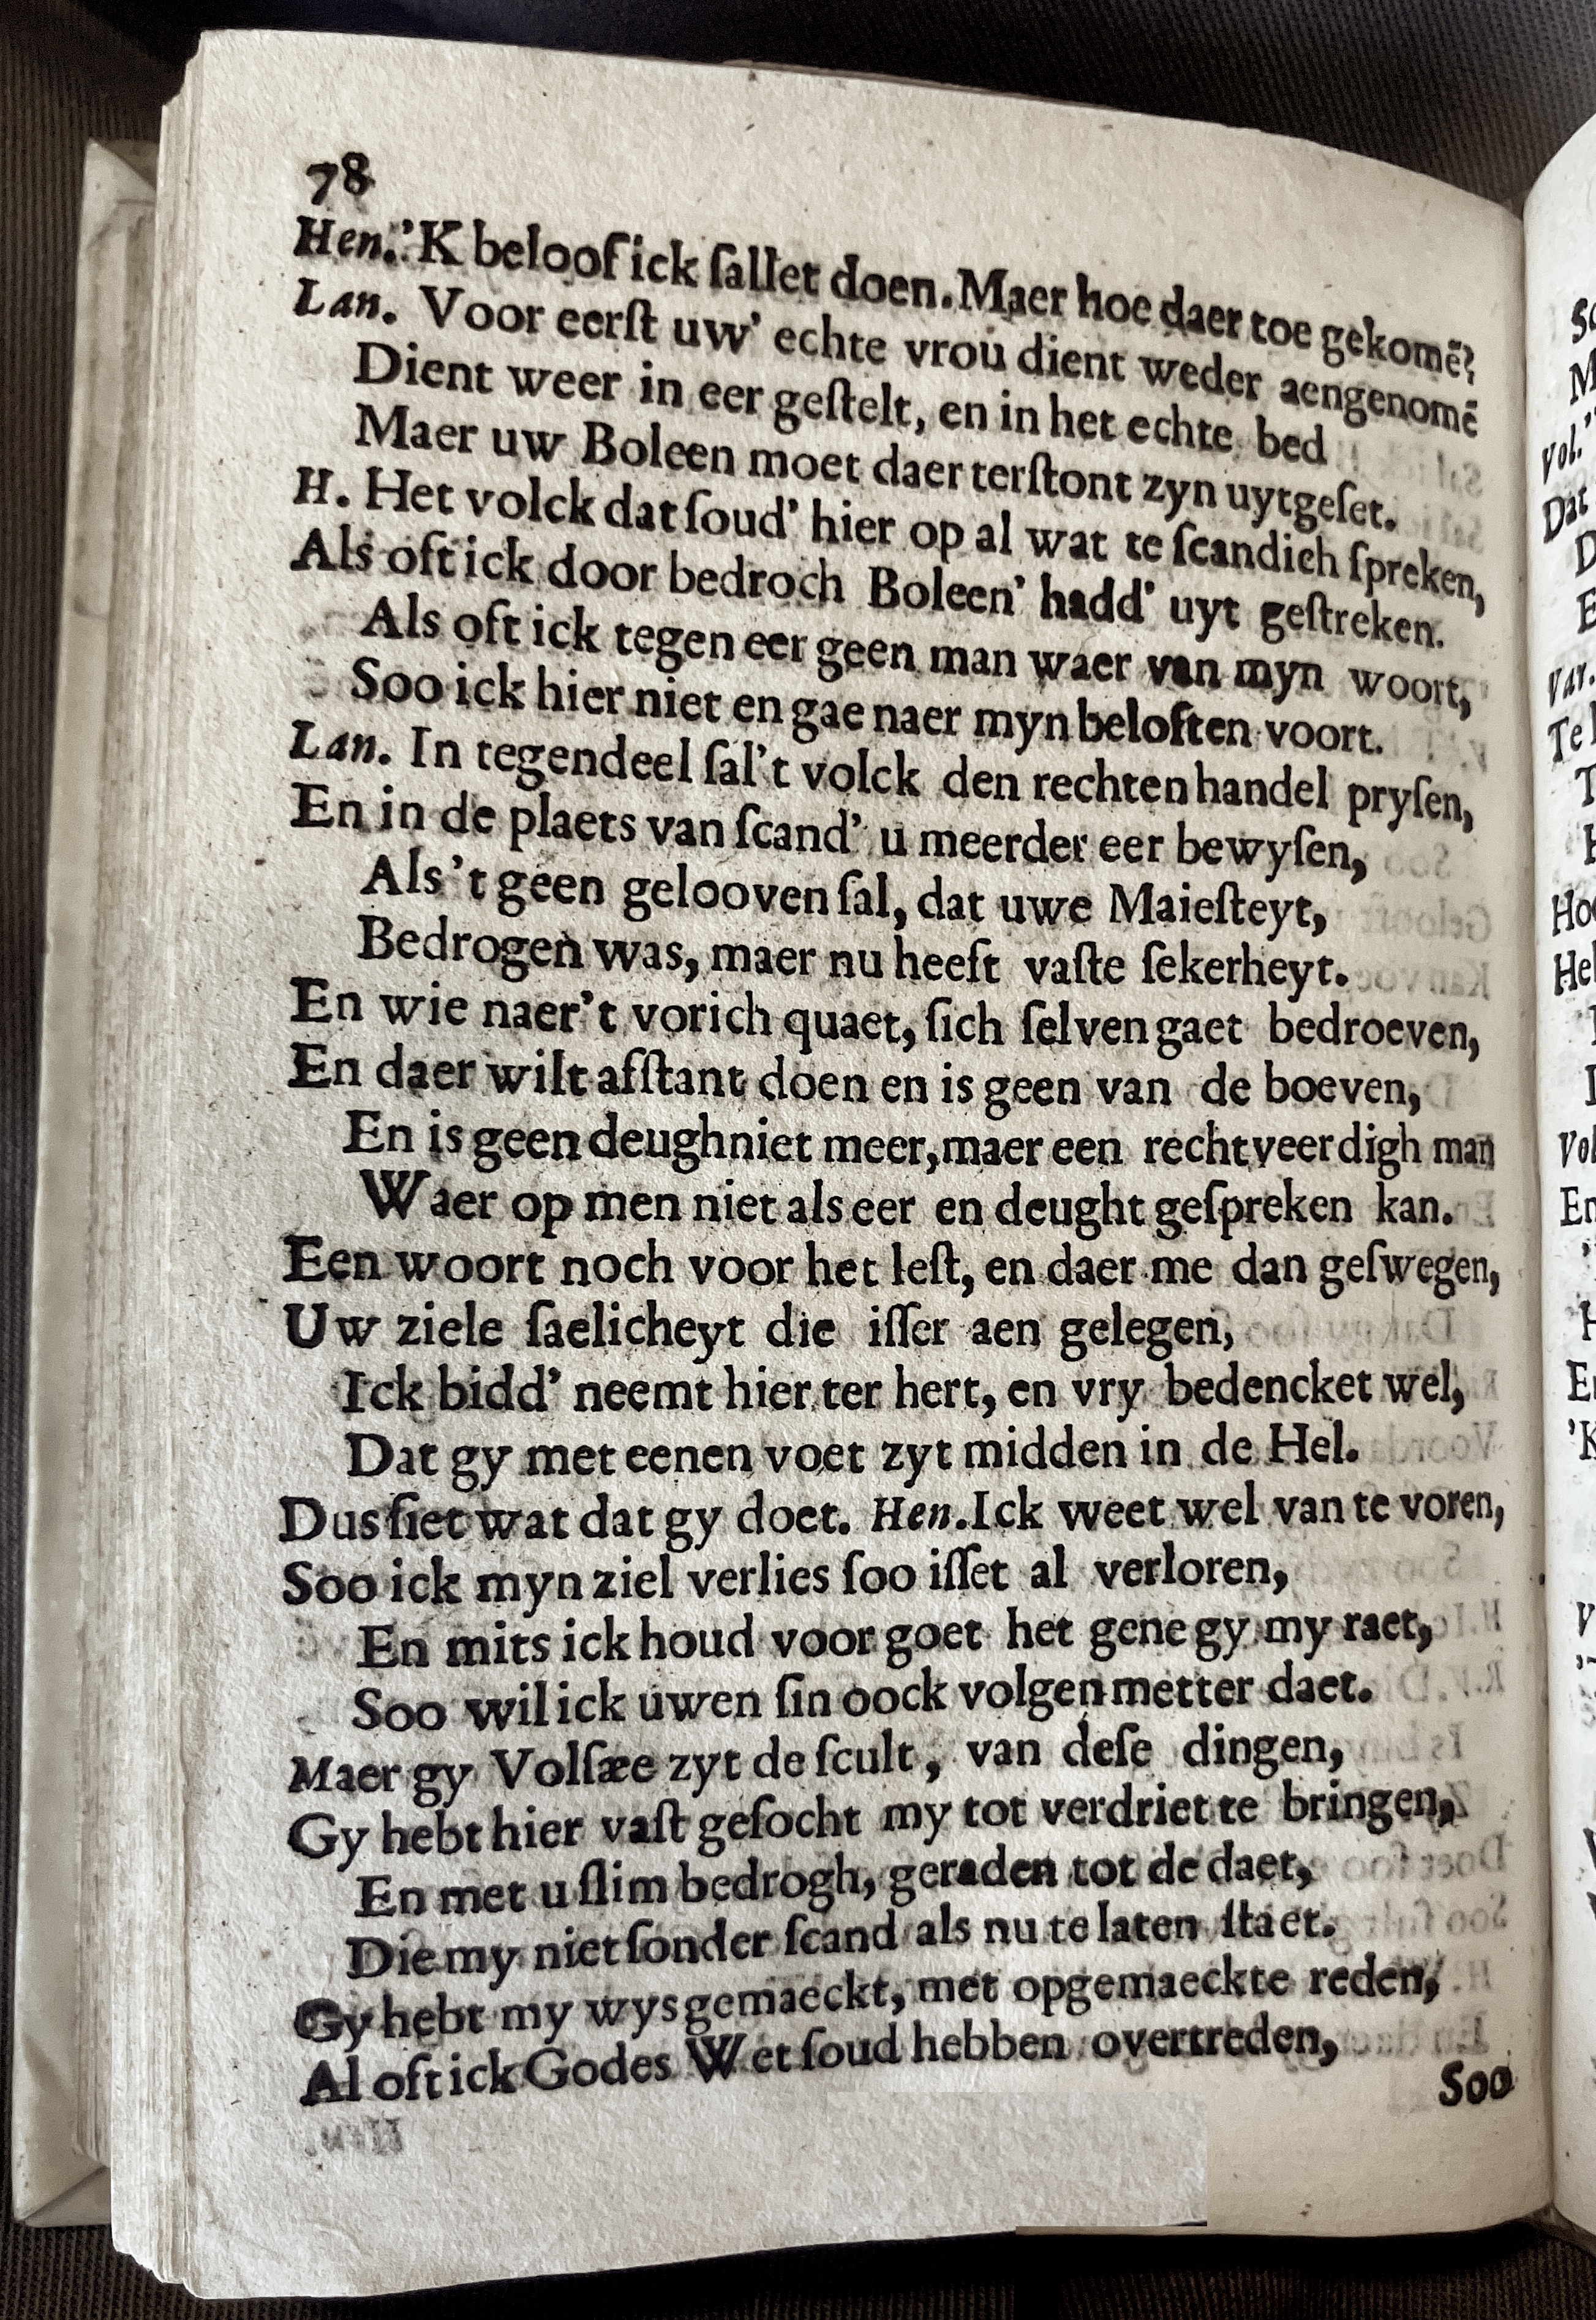 78
Hen.'K beloof ick ſallet doen. Maer hoe daer toe gekomē?
Lan. Voor eerſt uw' echte vrou dient weder aengenomē
Dient weer in eer geſtelt, en in het echte bed
Maer uw Boleen moet daer terſtont zyn uytgeſet.
H. Het volck dat ſoud' hier op al wat te ſcandich ſpreken,
Als oft ick door bedroch Boleen' hadd' uyt geſtreken.
Als oft ick tegen eer geen man waer van myn woort,
Soo ick hier niet en gae naer myn beloften voort.
Lan. In tegendeel ſal't volck den rechten handel pryſen,
En in de plaets van ſcand' u meerder eer bewyſen,
Als 't geen gelooven ſal, dat uwe Maieſteyt,
Bedrogen was, maer nu heeft vaſte ſekerheyt.
En wie naer't vorich quaet, ſich ſelven gaet bedroeven,
En daer wilt afſtant doen en is geen van de boeven,
En is geen deughniet meer, maer een rechtveerdigh man
Waer op men niet als eer en deught geſpreken kan.
Een woort noch voor het leſt, en daer me dan geſwegen,
Uw ziele ſaelicheyt die iſſer aen gelegen,
Ick bidd' neemt hier ter hert, en vry bedencket wel,
Dat gy met eenen voet zyt midden in de Hel.
Dus ſiet wat dat gy doet. Hen. Ick weet wel van te voren,
Soo ick myn ziel verlies ſoo iſſet al verloren,
En mits ick houd voor goet het gene gy my raet,
Soo wil ick uwen ſin oock volgen metter daet.
Maer gy Volſæe zyt de ſcult, van deſe dingen,
Gy hebt hier vaſt geſocht my tot verdriet te bringen,
En met u ſlim bedrogh, geraden tot de daet,
Die my niet ſonder ſcand als nu te laten ſtaet.
Gy hebt my wys gemaeckt, met opgemaeckte reden,
Al oft ick Godes Wet ſoud hebben overtreden,
Soo